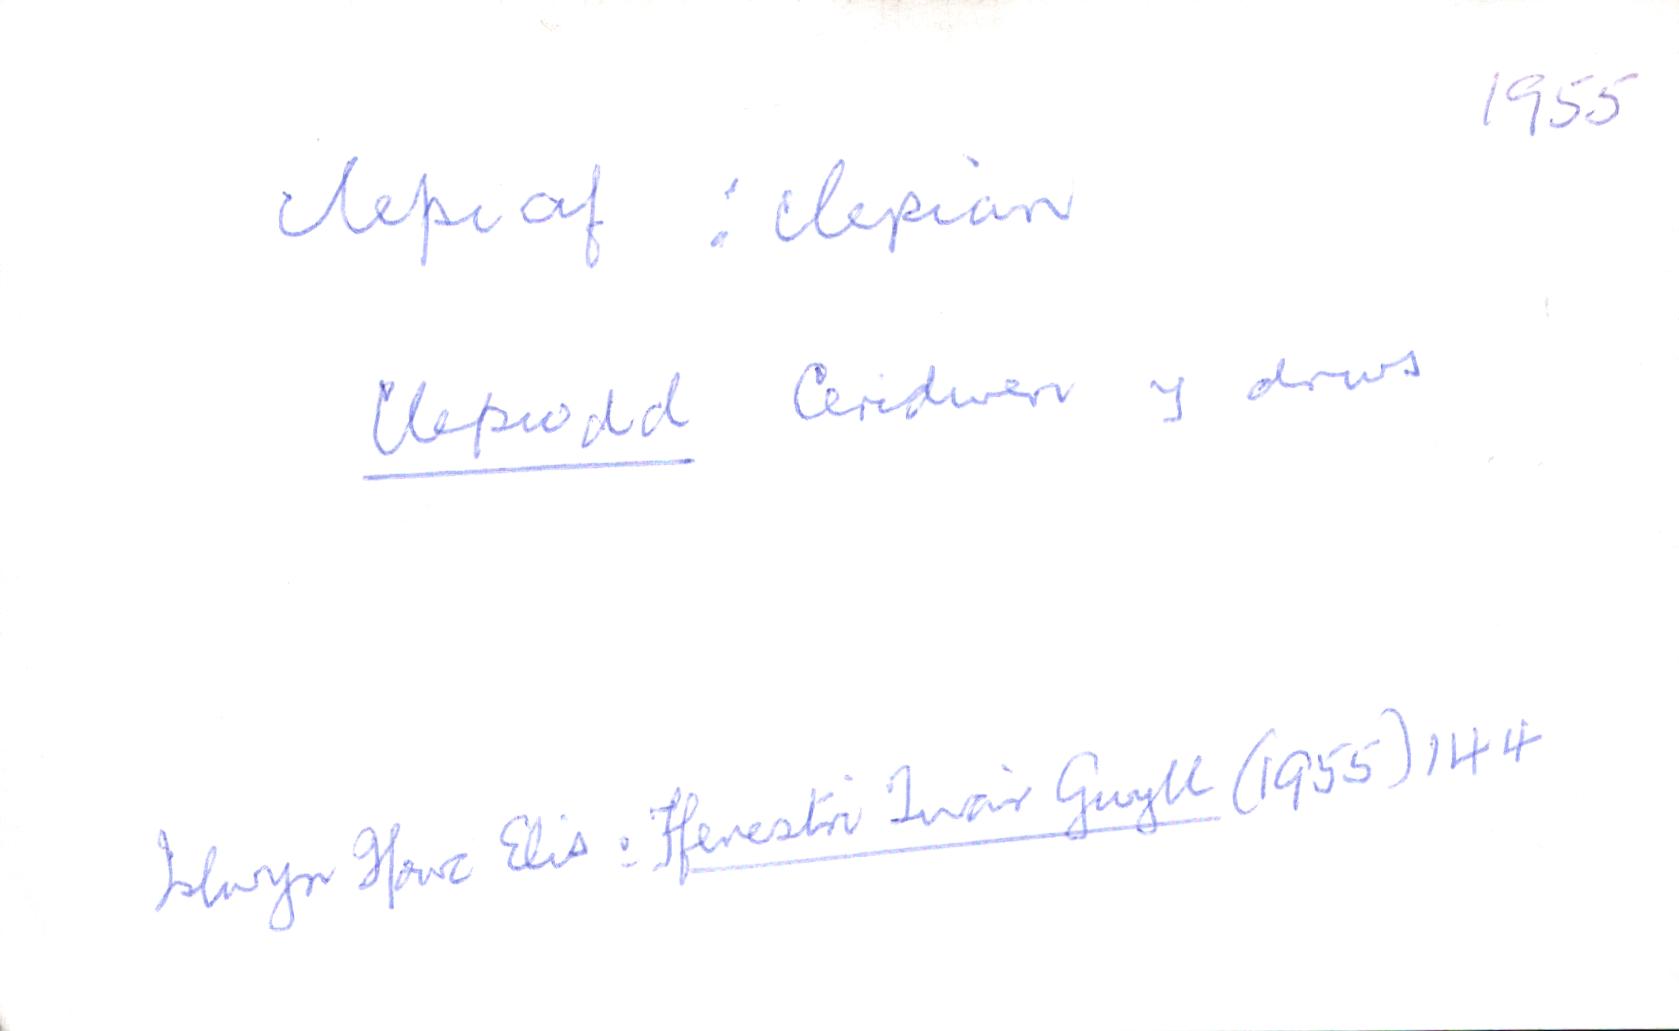 1955
clepiaf : clepian
Clepiodd Ceridwen y drws
Islwyn Ffowc Elis : Ffenestri Tua'r Gwyll (1955) 144